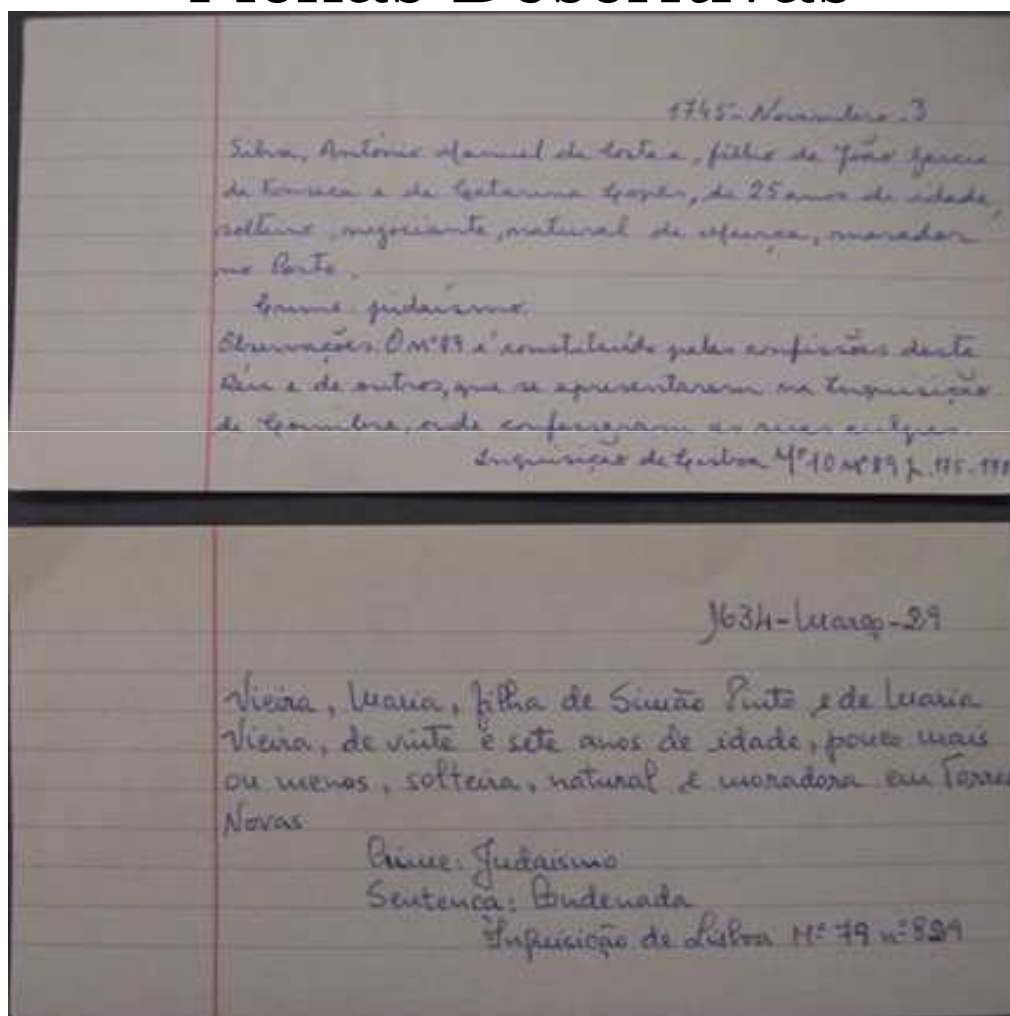 Fichas Descritivas
1745-Novembro-3
Silva, António Manuel da Costa e, filho de João Garcia
da Fonseca e de Catarina Lopes, de 25 anos de idade,
solteiro, negociante, natural de, morador
no Porto.
Crime: judaísmo.
Observações: O nº 89 é constituido pelas confissões deste
Réu e de outros, que se apresentaram na Inquisição
de Coimbra, onde confessaram as suas culpas.
Inquisição de Lisboa Mº 10 nº 89 f. 175-178
1634-Março-29
Vieira, Maria, filha de Simão Pinto e de Maria
Vieira, de vinte e sete anos de idade, pouco mais
ou menos, solteira, natural e moradora em Torres
Novas
Crime: Judaismo
Sentença: Condenada
Inquisição de Lisboa Mº 79 nº 829